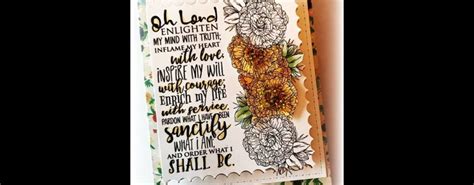 Oh Lord
ENLIGHTEN
MY MIND WITH TRUTH;
INFLAME MY HEART
with love;
INSPIRE MY WILL
with courage;
ENRICH MY LIFE
with service.
PARDON WHAT I HAVE BEEN
sanctify
WHAT I AM;
AND ORDER WHAT I
SHALL BE.